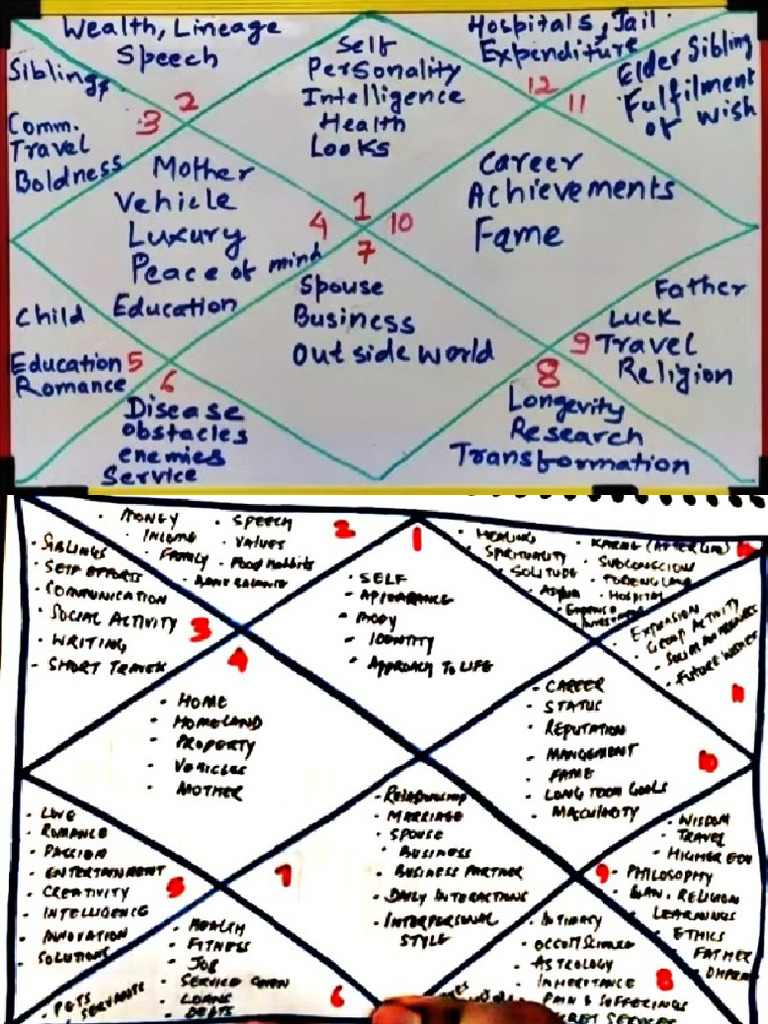 Wealth, Lineage
Speech
2
Self
Personality
Intelligence
Health
Looks
1
Hospitals, Jail.
Expenditure
12
Elder Sibling
Fulfilment
of wish
11
Siblings
Comm.
Travel
Boldness
3
Mother
Vehicle
Luxury
Peace of mind
Education
4
Career
Achievements
Fame
10
7
Spouse
Business
Outside world
Child
Education
Romance
5
6
Disease
obstacles
enemies
Service
Father
Luck
Travel
Religion
9
8
Longevity
Research
Transformation
• MONEY
• INCOME
• FAMILY
• SPEECH
• VALUES
• Food Habbits
• BANK BALANCE
2
1
• SELF
• APPEARANCE
• BODY
• IDENTITY
• APPROACH TO LIFE
• HEALING
• SPIRITUALITY
• SOLITUDE
• Asylum
• Expense
• KARMA (AFTER LIFE)
• SUBCONSCIOUS
• FOREIGN LAND
• HOSPITAL
• EXPANSION
• GROUP ACTIVITY
• FUTURE WISHES
11
• SIBLINGS
• SELF EFFORTS
• COMMUNICATION
• SOCIAL ACTIVITY
• WRITING
• SHORT TRAVEL
3
4
• HOME
• HOMELAND
• PROPERTY
• VEHICLES
• MOTHER
• CAREER
• STATUS
• REPUTATION
• MANGEMENT
• FAME
• LONG TERM GOALS
• MASCULINITY
10
• LOVE
• ROMANCE
• PASSION
• ENTERTAINMENT
• CREATIVITY
• INTELLIGENCE
• INNOVATION
• SOLUTIONS
5
7
• RELATIONSHIP
• MARRIAGE
• SPOUSE
• BUSINESS
• BUSINESS PARTNER
• DAILY INTERACTIONS
• INTERPERSONAL
STYLE
• WISDOM
• TRAVEL
• HIGHER EDU
• PHILOSOPHY
RELIGION
• LEARNINGS
• ETHICS
• FATHER
9
• HEALTH
• FITNESS
• JOB
• SERVICE GIVEN
• LOANS
• DEBTS
• PETS
SERVANTS
6
• INTIMACY
• OCCULT SCIENCE
• ASTROLOGY
• INHERITANCE
• PAIN & SUFFERINGS
SECRET SERVICES
8